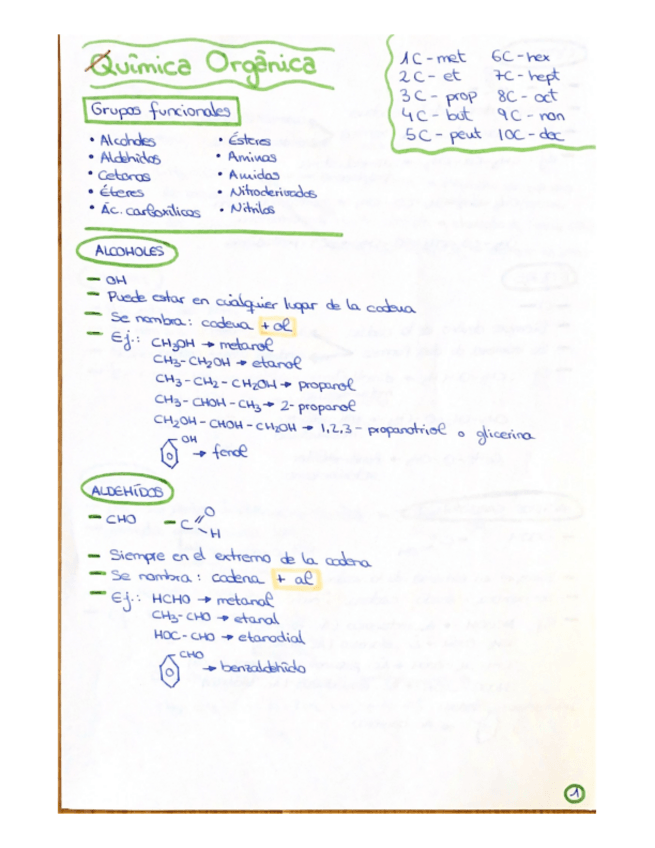 Química Orgánica
1C - met 6C - hex
2C - et 7C - hept
3C - prop 8C - oct
4C - but 9C - non
5C - peut 10C - dec
Grupos funcionales
• Alcoholes
• Aldehídos
• Cetonas
• Éteres
• Ác. carboxílicos
• Ésteres
• Aminas
• Amidas
• Nitroderivados
• Nitrilos
ALCOHOLES
- OH
- Puede estar en cualquier lugar de la cadena
- Se nombra: cadena + ol
- Ej.: CH3OH → metanol
CH3-CH2OH → etanol
CH3-CH2-CH2OH → propanol
CH3-CHOH-CH3 → 2-propanol
CH2OH-CHOH-CH2OH → 1,2,3-propanotriol o glicerina
OH → fenol
ALDEHÍDOS
- CHO - C O H
- Siempre en el extremo de la cadena
- Se nombra: cadena + al
- Ej.: HCHO → metanal
CH3-CHO → etanal
HOC-CHO → etanodial
CHO → benzaldehído
1